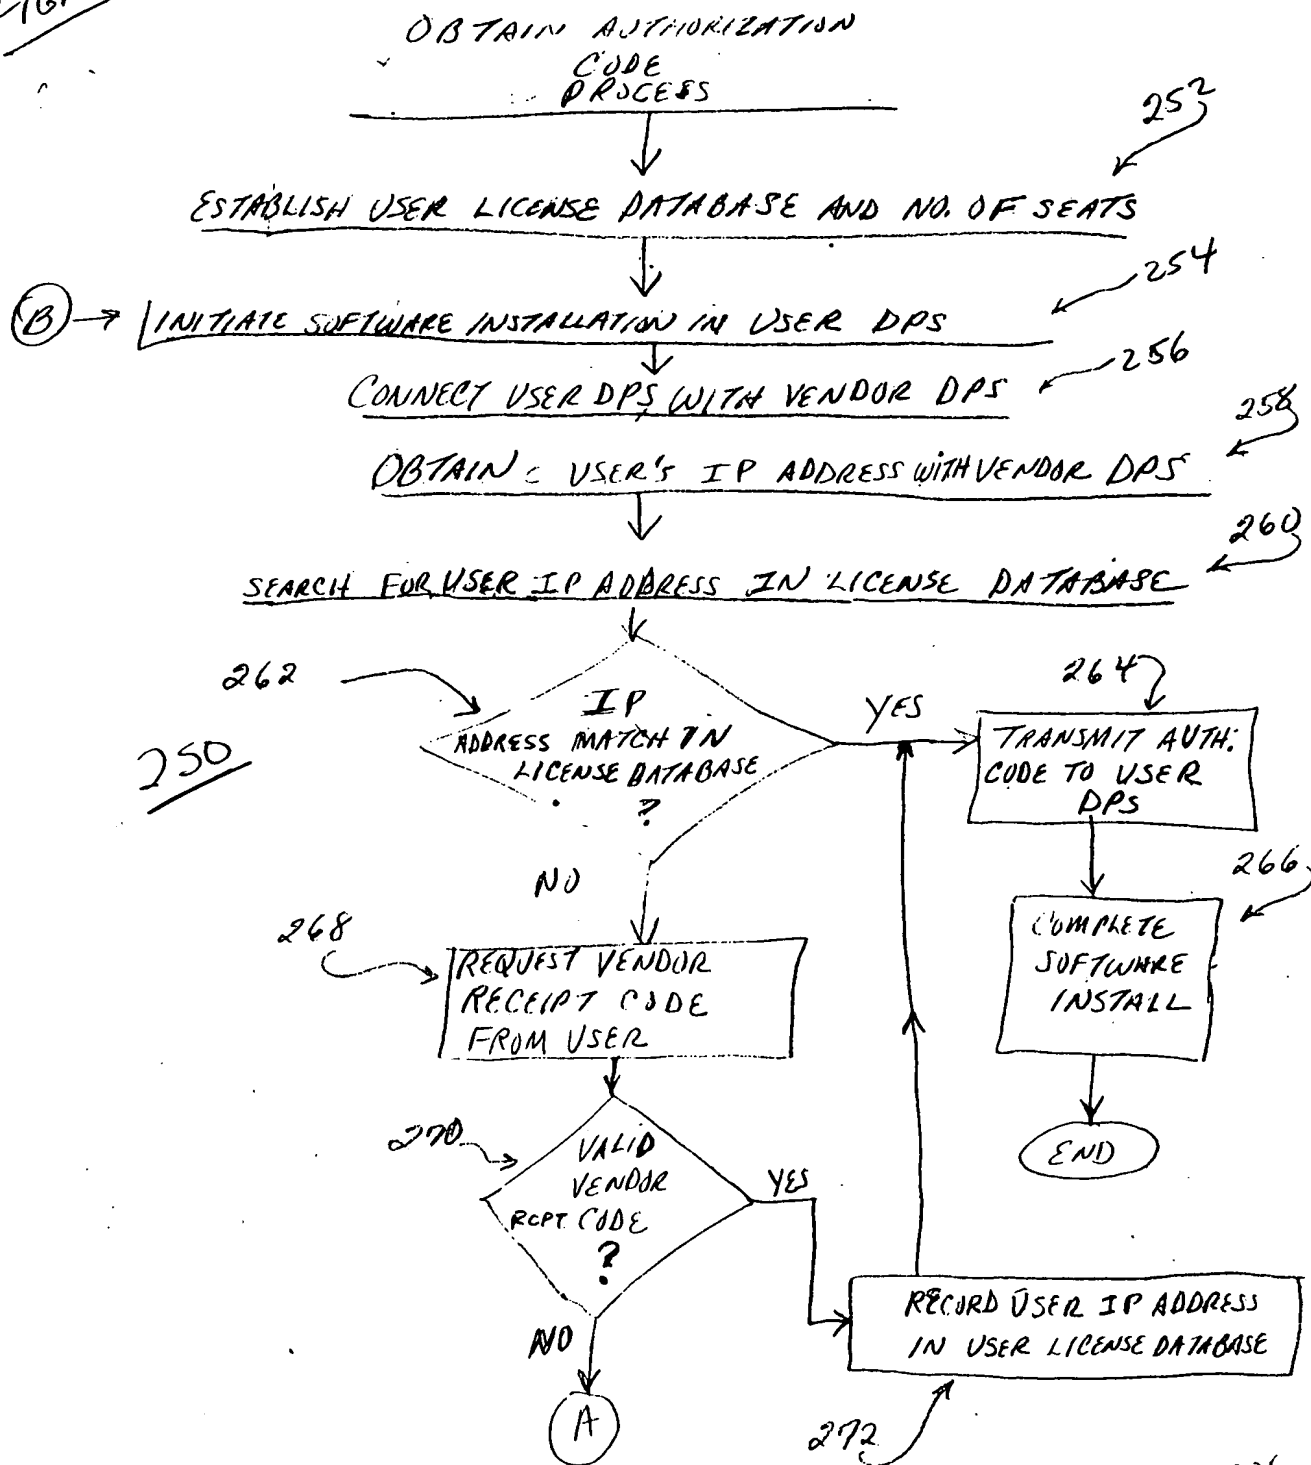 OBTAIN AUTHORIZATION
CODE
PROCESS
252
ESTABLISH USER LICENSE DATABASE AND NO. OF SEATS
254
B
INITIATE SOFTWARE INSTALLATION IN USER DPS
256
CONNECT USER DPS WITH VENDOR DPS
258
OBTAIN USER'S IP ADDRESS WITH VENDOR DPS
260
SEARCH FOR USER IP ADDRESS IN LICENSE DATABASE
262
264
IP
ADDRESS MATCH IN
LICENSE DATABASE
?
YES
TRANSMIT AUTH.
CODE TO USER
DPS
250
NO
266
268
REQUEST VENDOR
RECEIPT CODE
FROM USER
COMPLETE
SOFTWARE
INSTALL
270
VALID
VENDOR
RCPT CODE
?
YES
END
NO
RECORD USER IP ADDRESS
IN USER LICENSE DATABASE
A
272